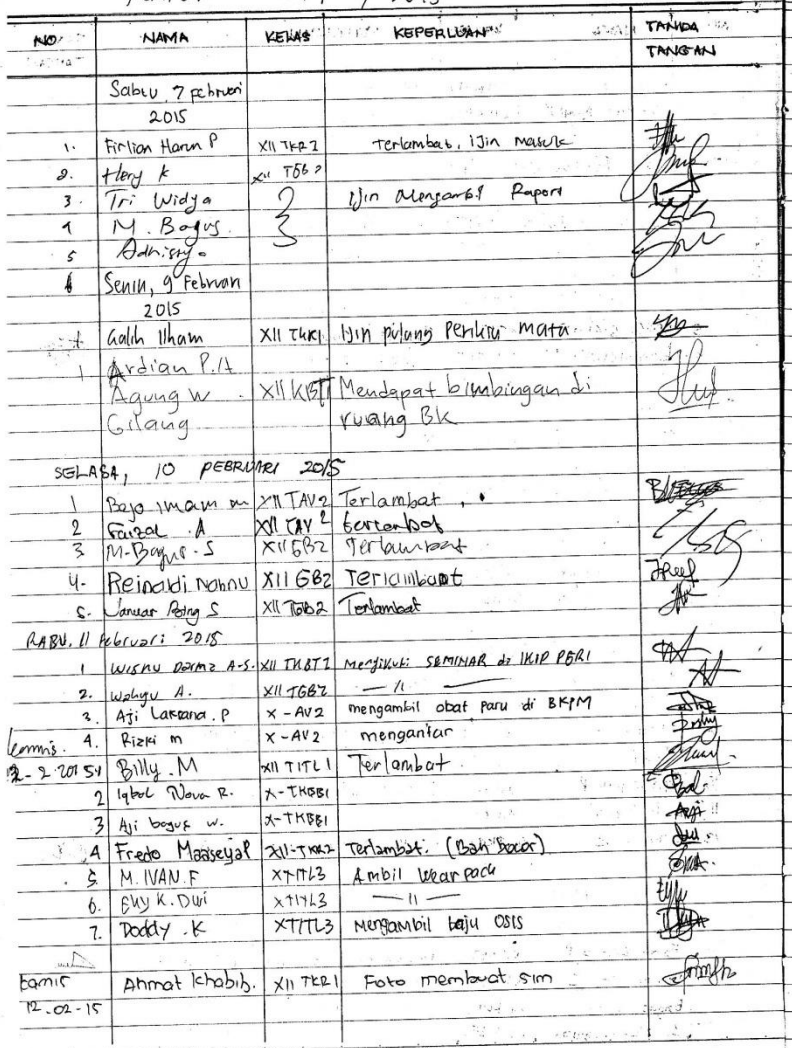 NO NAMA KELAS KEPERLUAN TANDA
TANGAN
Sabtu, 7 februari
2015
1. Firlian Harun P XII TKR2 Terlambat, ijin masuk
2. Hery K XII TGB2
3. Tri Widya Ijin Mengambil Raport
4 M. Bagus
5
6 Senin, 9 Februari
2015
Galih Ilham XII TKR1 Ijin pulang Periksa mata
1 Ardian P.A
Agung W XII Mendapat bimbingan di
Gilang ruang BK
SELASA, 10 PEBRUARI 2015
1 Bayo imam m XII TAV2 Terlambat
2 Faizal A XII TAV2 terlambat
3 M. Bagus. S XII GB2 Terlambat
4. Reinaldi XII GB2 Terlambat
5. Januar S XII TGB2 Terlambat
RABU, 11 februari 2015
1 Wisnu A-S. XII Mengikuti SEMINAR di IKIP PGRI
2. Wahyu A. XII TGB2 — 11 —
3. Aji Laksana. P X - AV2 mengambil obat paru di BKPM
4. Rizki m X - AV2 mengantar
kamis.
12-2-2015 1 Billy. M XII TITL 1 Terlambat
2 Iqbal Nova R. X-TKBB1
3 Aji bagus w. X-TKBB1
4 Fredo XII-TKR2 Terlambat. (Ban Bocor)
5. M. IVAN. F XTITL3 Ambil wearpack
6. Eky K. Dwi XTITL3 — 11 —
7. Doddy. K XTITL3 Mengambil baju OSIS
kamis Ahmat Khabib. XII TKR1 Foto membuat sim
12-02-15